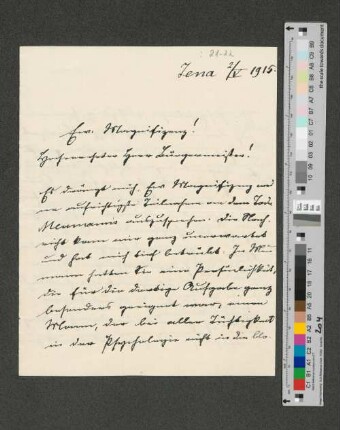 Jena 2/V 1915.
Ew. Magnifizenz!
Hochverehrter Herr Bürgermeister!
Es drängt mich, Ew. Magnifizenz mei-
ne aufrichtigste Teilnahme an dem Tode
Meumanns auszusprechen. Die Nach-
richt kam mir ganz unerwartet
und hat mich tief betrübt. In Meu-
mann hatten Sie eine Persönlichkeit,
die für die dortige Aufgabe ganz
besonders geeignet war, einen
Mann, der bei aller Tüchtigkeit
in der Psychologie nicht in die blo-